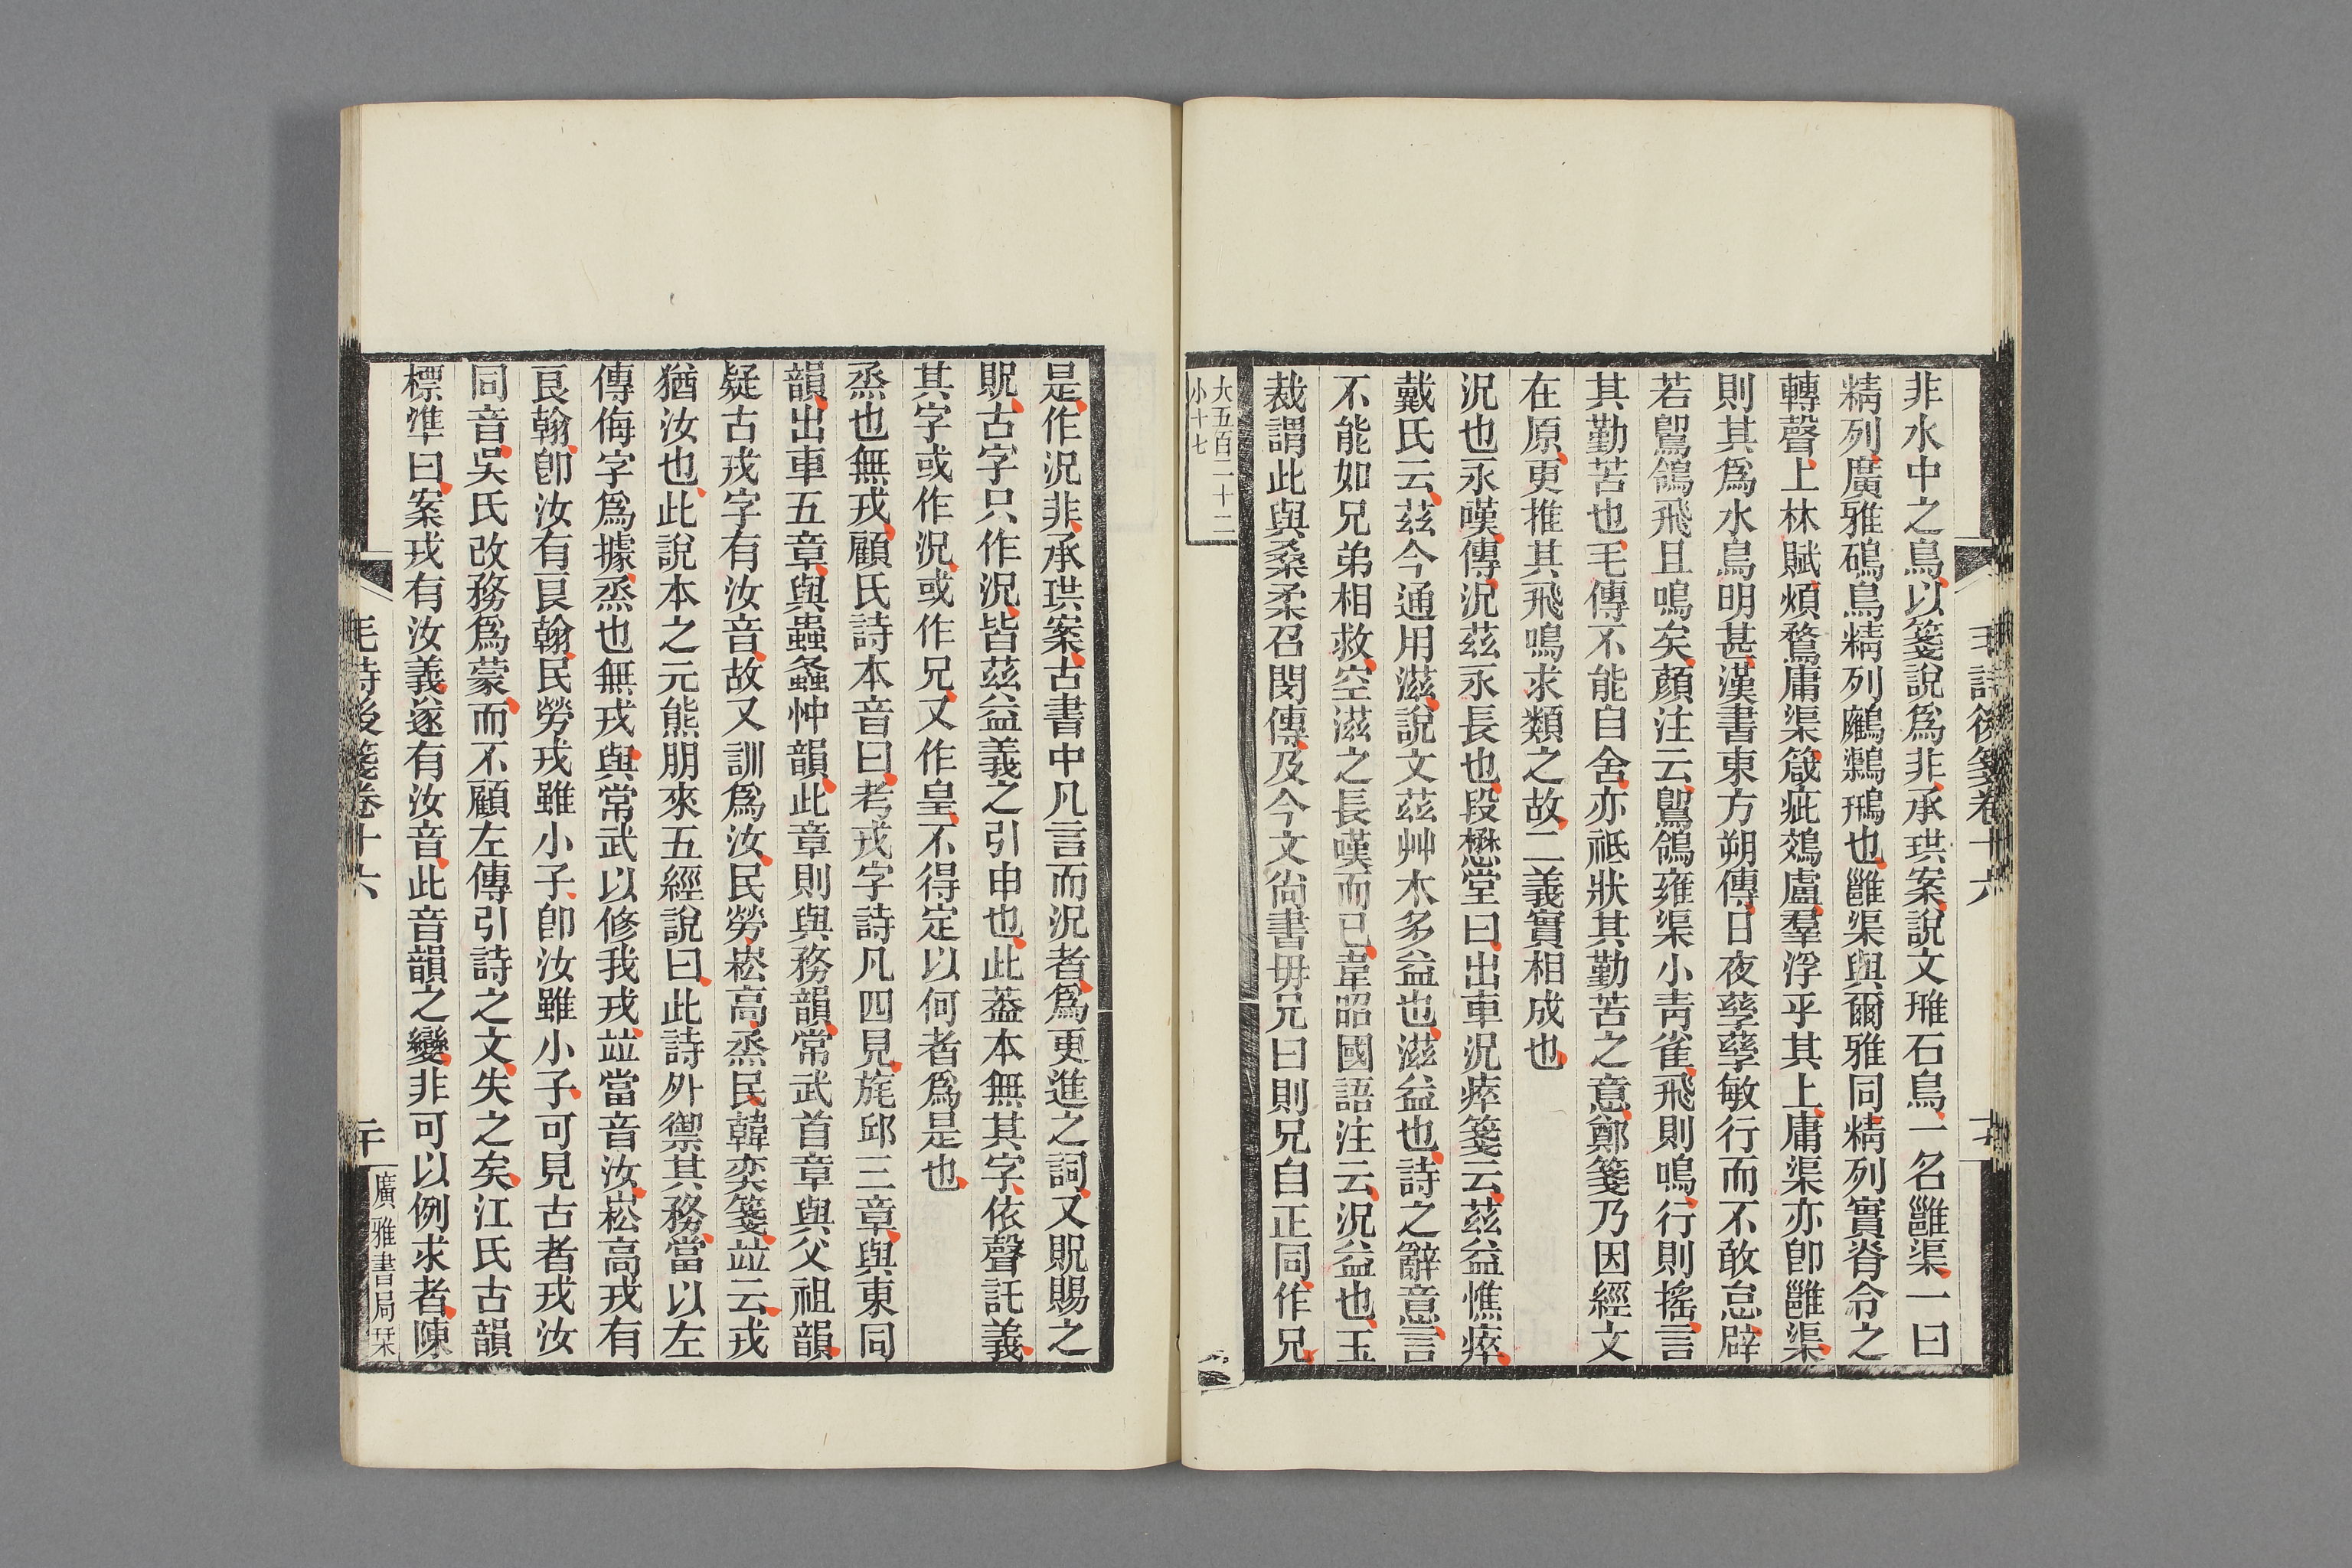 毛詩後箋卷十六
非水中之鳥以箋說爲非承珙案說文䧹石鳥一名雝渠一曰
精列廣雅鵖鳥精列鷛鶫鴉也雝渠與爾雅同精列實脊令之
轉聲上林賦煩鶩庸渠箴疵鵁盧羣浮乎其上庸渠亦卽雝渠
則其爲水鳥明甚漢書東方朔傳日夜孳孳敏行而不敢怠辟
若鶺鴒飛且鳴矣顏注云鶺鴒雍渠小青雀飛則鳴行則搖言
其勤苦也毛傳不能自舍亦祗狀其勤苦之意鄭箋乃因經文
在原更推其飛鳴求類之故二義實相成也
況也永嘆傳況茲永長也段懋堂曰出車況瘁箋云茲益憔瘁
戴氏云茲今通用滋說文茲艸木多益也滋益也詩之辭意言
不能如兄弟相救空滋之長嘆而已韋昭國語注云況益也玉
裁謂此與桑柔召閔傳及今文尙書毋兄曰則兄自正同作兄
大五百二十二
小十七
是作況非承珙案古書中凡言而況者爲更進之詞又貺賜之
貺古字只作況皆茲益義之引申也此葢本無其字依聲託義
其字或作況或作兄又作皇不得定以何者爲是也
烝也無戎顧氏詩本音曰考戎字詩凡四見旄邱三章與東同
韻出車五章與蟲螽忡韻此章則與務韻常武首章與父祖韻
疑古戎字有汝音故又訓爲汝民勞崧高烝民韓奕箋竝云戎
猶汝也此說本之元熊朋來五經說曰此詩外禦其務當以左
傳侮字爲據烝也無戎與常武以修我戎竝當音汝崧高戎有
良翰卽汝有良翰民勞戎雖小子卽汝雖小子可見古者戎汝
同音吳氏改務爲蒙而不顧左傳引詩之文失之矣江氏古韻
標準曰案戎有汝義遂有汝音此音韻之變非可以例求者陳
毛詩後箋卷十六
二十
廣雅書局栞